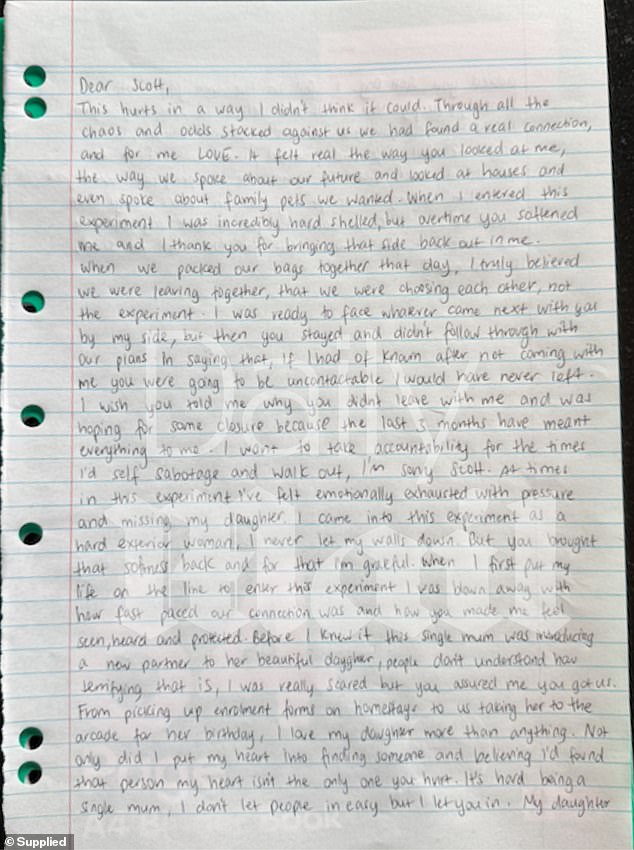 Dear Scott,
This hurts in a way I didn't think it could. Through all the
chaos and odds stacked against us we had found a real connection,
and for me LOVE. It felt real the way you looked at me,
the way we spoke about our future and looked at houses and
even spoke about family pets we wanted. When I entered this
experiment I was incredibly hard shelled, but overtime you softened
me and I thank you for bringing that side back out in me.
When we packed our bags together that day, I truly believed
we were leaving together, that we were choosing each other, not
the experiment. I was ready to face whatever came next with you
by my side, but then you stayed and didn't follow through with
our plans. In saying that, if I had of known after not coming with
me you were going to be uncontactable I would have never left.
I wish you told me why you didnt leave with me and was
hoping for some closure because the last 3 months have meant
everything to me. I want to take accountability for the times
i'd self sabotage and walk out, I'm sorry Scott. At times
in this experiment I've felt emotionally exhausted with pressure
and missing my daughter. I came into this experiment as a
hard exterior woman, I never let my walls down. But you brought
that softness back and for that i'm grateful. When I first put my
life on the line to enter this experiment I was blown away with
how fast paced our connection was and how you made me feel
seen, heard and protected. Before I knew it this single mum was introducing
a new partner to her beautiful daughter, people don't understand how
terrifying that is, I was really scared but you assured me you got us.
From picking up enrolment forms on homestays to us taking her to the
arcade for her birthday, I love my daughter more than anything. Not
only did I put my heart into finding someone and believing i'd found
that person my heart isn't the only one you hurt. It's hard being a
single mum, I don't let people in easy but I let you in. My daughter
Daily Mail
© Supplied